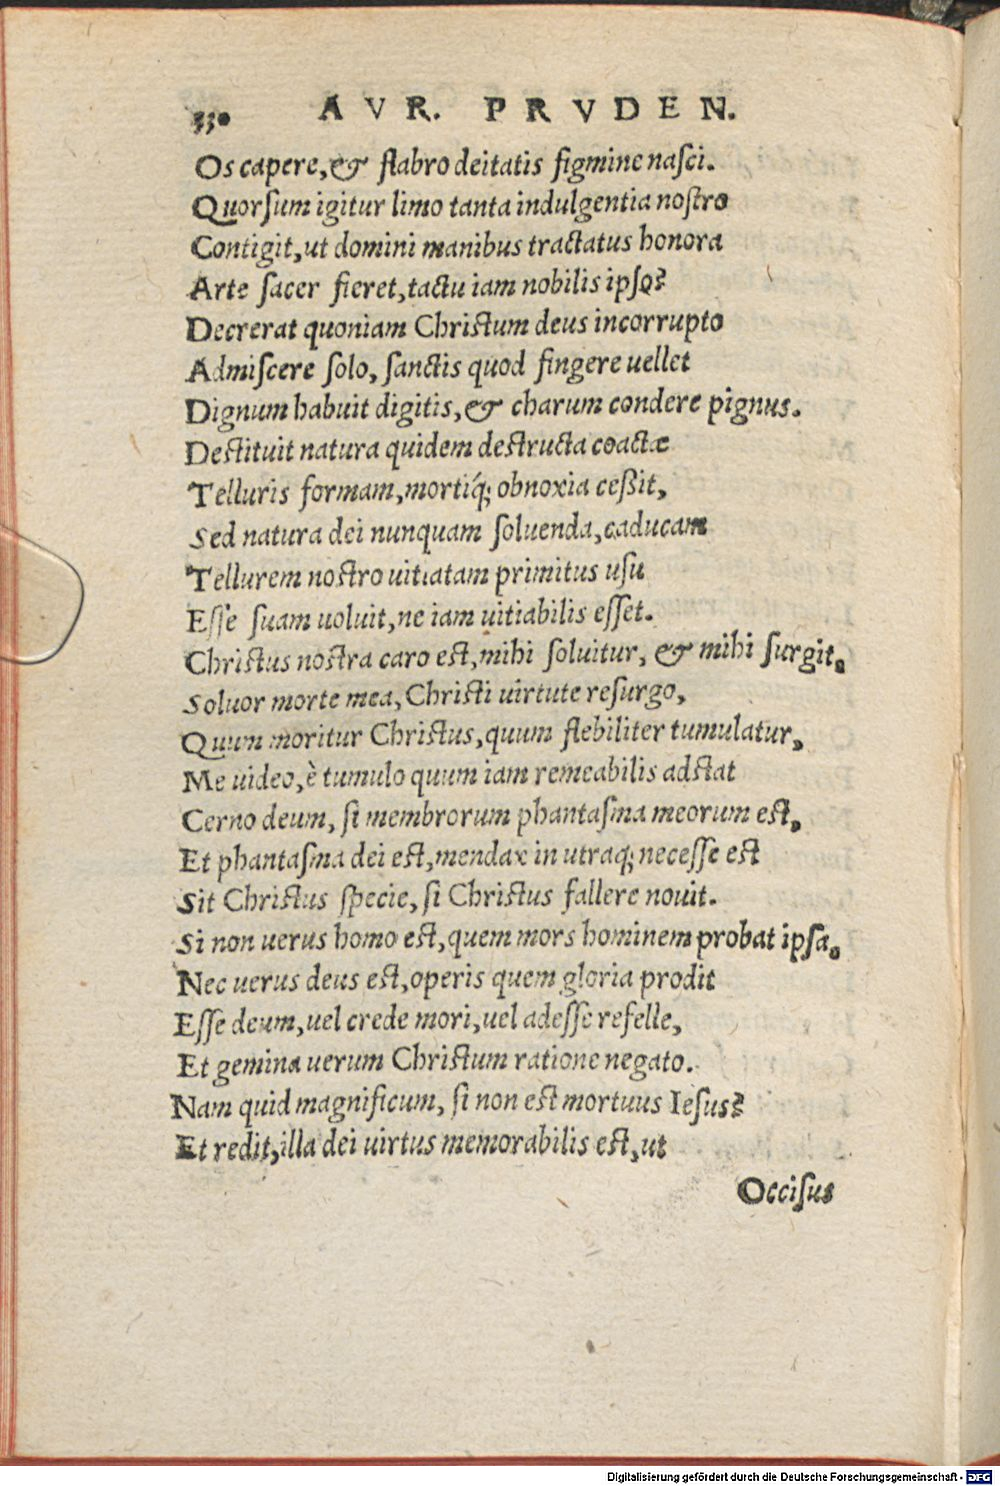 330 AVR. PRVDEN.
Os capere, & flabro deitatis figmine nasci.
Quorsum igitur limo tanta indulgentia nostro
Contigit, ut domini manibus tractatus honora
Arte sacer fieret, tactu iam nobilis ipso?
Decrerat quoniam Christum deus incorrupto
Admiscere solo, sanctis quod fingere uellet
Dignum habuit digitis, & charum condere pignus.
Destituit natura quidem destructa coactæ
Telluris formam, mortiq́; obnoxia ceßit,
Sed natura dei nunquam soluenda, caducam
Tellurem nostro uitiatam primitus usu
Esse suam uoluit, ne iam uitiabilis esset.
Christus nostra caro est, mihi soluitur, & mihi surgit.
Soluor morte mea, Christi uirtute resurgo,
Quum moritur Christus, quum flebiliter tumulatur,
Me uideo, è tumulo quum iam remeabilis adstat
Cerno deum, si membrorum phantasma meorum est,
Et phantasma dei est, mendax in utraq; necesse est
Sit Christus specie, si Christus fallere nouit.
Si non uerus homo est, quem mors hominem probat ipsa,
Nec uerus deus est, operis quem gloria prodit
Esse deum, uel crede mori, uel adesse refelle,
Et gemina uerum Christum ratione negato.
Nam quid magnificum, si non est mortuus Iesus?
Et redit, illa dei uirtus memorabilis est, ut
Occisus
Digitalisierung gefördert durch die Deutsche Forschungsgemeinschaft - DFG